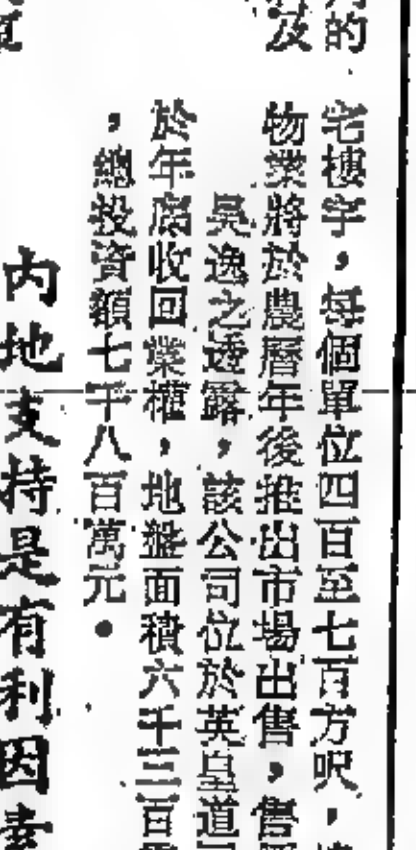 的
宅樓宇，每個單位四百至七百方呎，
及
物業將於農曆年後推出市場出售，售
吳逸之透露，該公司位於英皇道
於年底收回業權，地盤面積六千三百
，總投資額七千八百萬元。
內地支持是有利因素